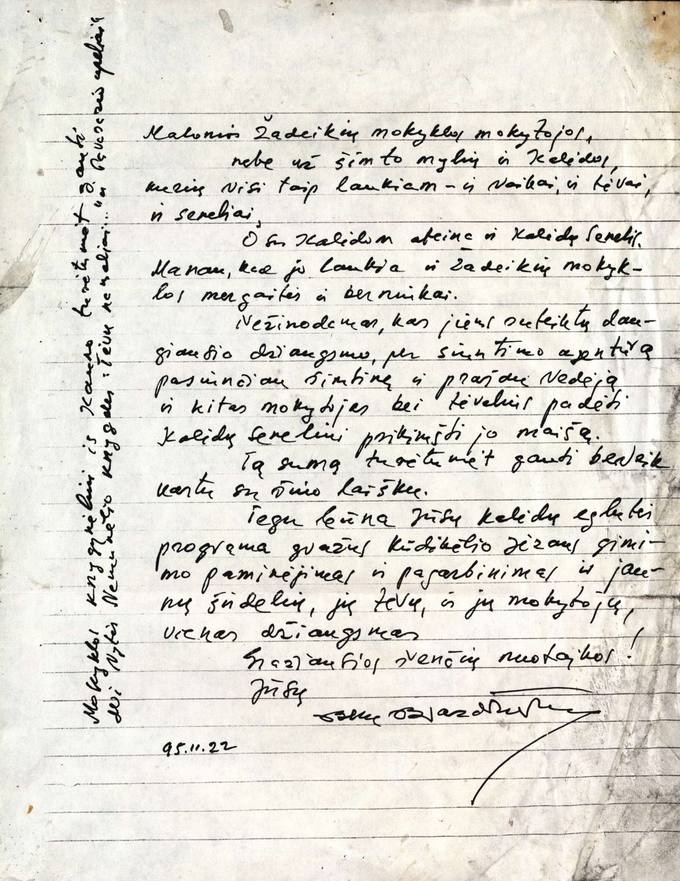 Malonios Žadeikių mokyklos mokytojos,
nebe už šimto mylių ir Kalėdos,
kurių visi taip laukiam - ir vaikai, ir tėvai,
ir seneliai,
O su Kalėdom ateina ir Kalėdų Senelis.
Manau, kad jo laukia ir Žadeikių mokyk-
los mergaitės ir berniukai.
Nežinodamas, kas jiems suteiktų dau-
giausio džiaugsmo, per siuntimo agentūrą
pasiunčiau šimtinę ir prašau vedėją
ir kitas mokytojas bei tėvelius padėti
Kalėdų Seneliui prikimšti jo maišą.
Tą sumą turėtumėt gauti beveik
kartu su šiuo laišku.
Tegu būna Jūsų Kalėdų eglutės
programa gražus Kūdikėlio Jėzaus gimi-
mo paminėjimas ir pagarbinimas ir jau-
nų širdelių, jų tėvų, ir jų mokytojų,
vienas džiaugsmas
Gražiausios švenčių nuotaikos!
Jūsų
95.11.22
Mokyklos knygynėliui iš Kauno turėtumėt gauti
Nemunėlio knygas: Tėvų